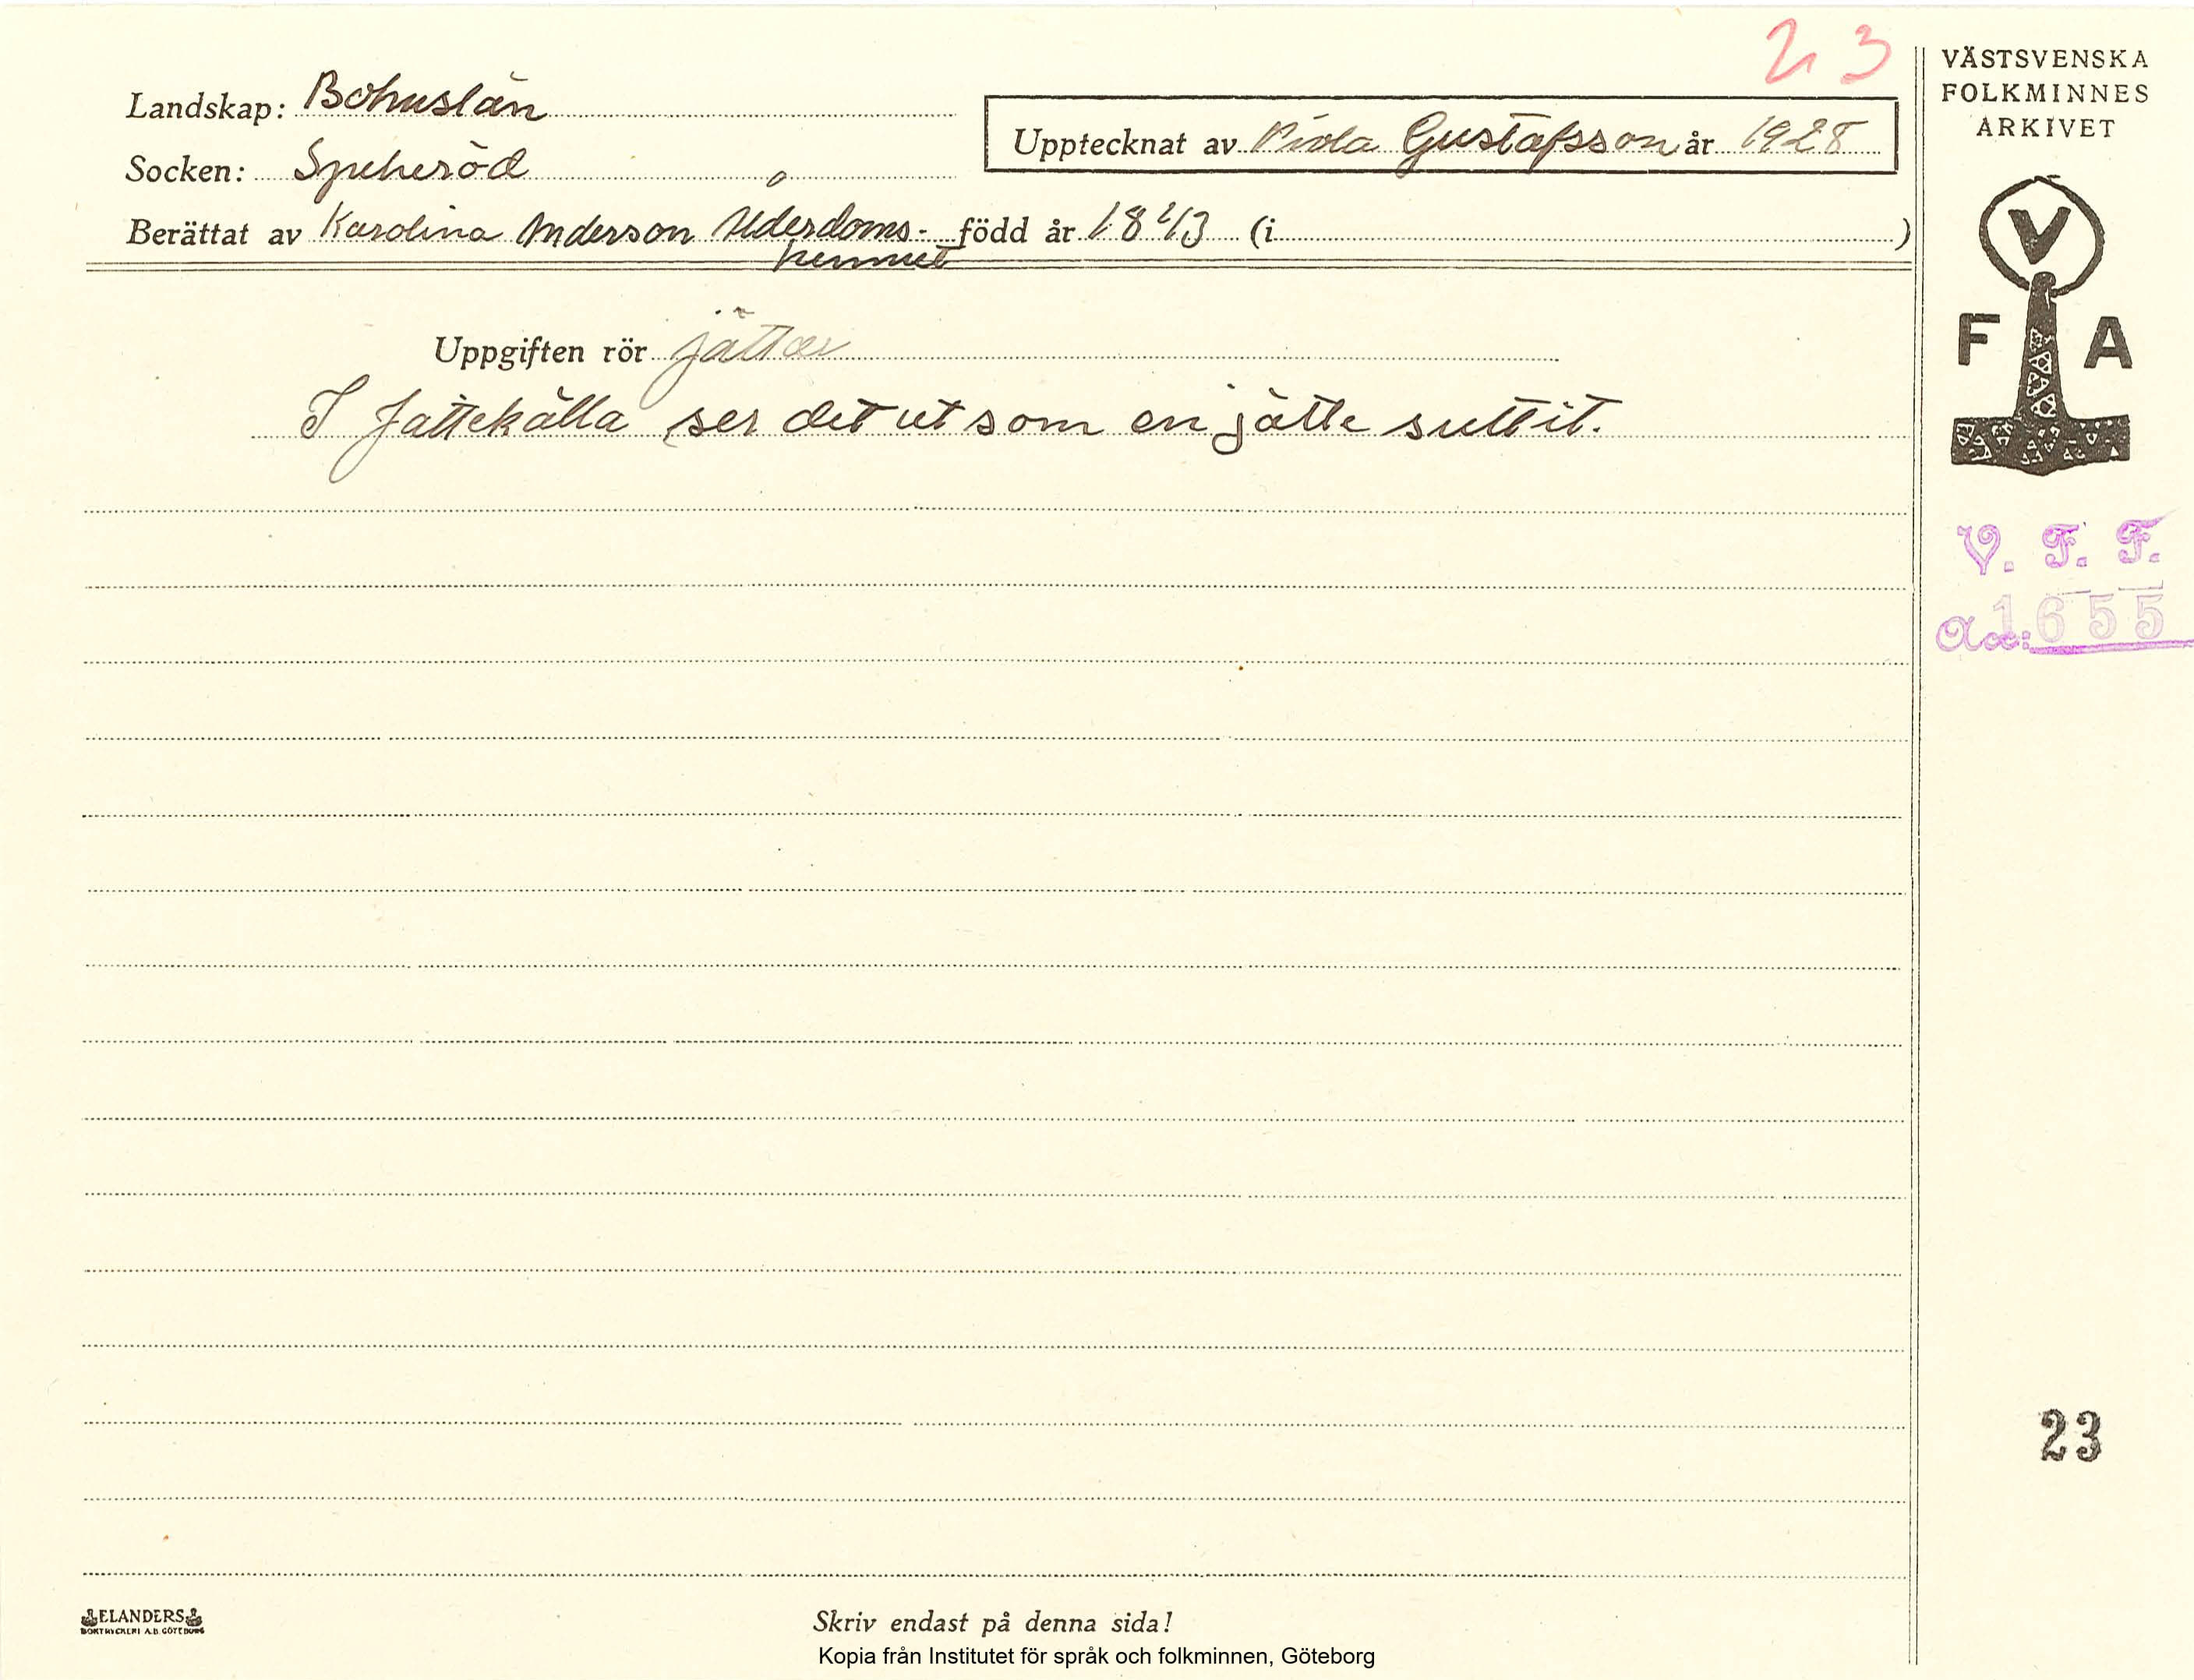 23
VÄSTSVENSKA
FOLKMINNES
ARKIVET
Landskap: Bohuslän
Upptecknat av Viola Gustafsson år 1928
Socken: Spekeröd
Berättat av Karolina Anderson Ålderdoms- född år 1843 (i )
hemmet
V
F A
Uppgiften rör jättar
I Jättekälla ser det ut som en jätte suttit.
V. F. F.
Acc: 1655
23
ELANDERS
BOKTRYCKERI A.B. GÖTEBORG
Skriv endast på denna sida!
Kopia från Institutet för språk och folkminnen, Göteborg